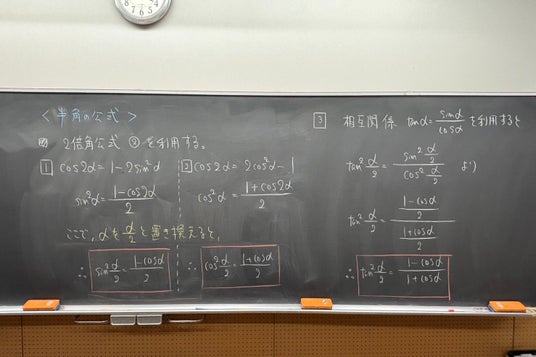 <半角の公式>
2倍角公式 ② を利用する。
1 cos2α = 1 - 2sin²α
sin²α = (1 - cos2α)/2
2 cos2α = 2cos²α - 1
cos²α = (1 + cos2α)/2
ここで、αを α/2 と置き換えると、
∴ sin² α/2 = (1 - cosα)/2
∴ cos² α/2 = (1 + cosα)/2
3 相互関係 tanα = sinα/cosα を利用すると
tan² α/2 = (sin² α/2)/(cos² α/2) より
tan² α/2 = ((1 - cosα)/2)/((1 + cosα)/2)
∴ tan² α/2 = (1 - cosα)/(1 + cosα)